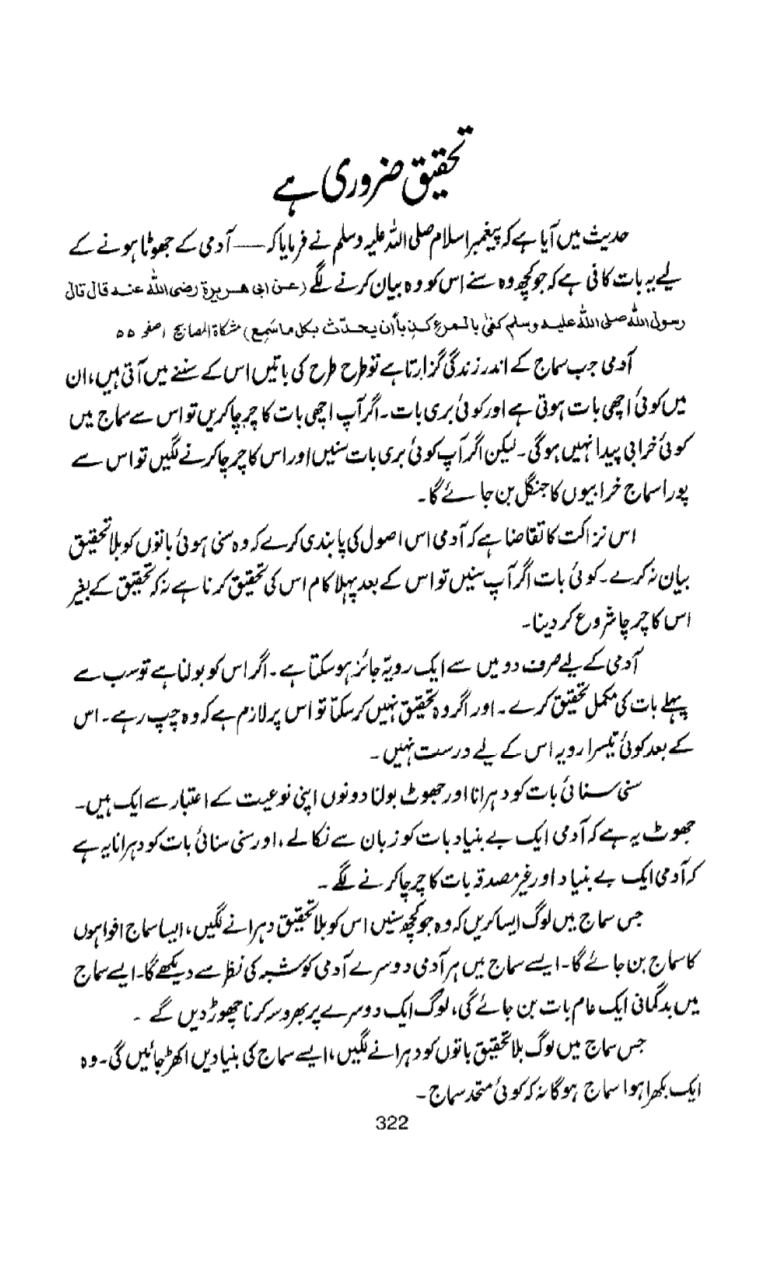 تحقیق ضروری ہے
حدیث میں آیا ہے کہ پیغمبر اسلام صلی اللہ علیہ وسلم نے فرمایا کہ — آدمی کے جھوٹا ہونے کے
لیے یہ بات کافی ہے کہ جو کچھ وہ سنے اس کو وہ بیان کرنے لگے (عن ابی ھریرۃ رضی اللہ عنہ قال قال
رسول اللہ صلی اللہ علیہ وسلم کفیٰ بالمرء کذباً أن یحدّث بکل ما سَمِع) مشکاۃ المصابیح ۱صفحہ ۵۵
آدمی جب سماج کے اندر زندگی گزارتا ہے تو طرح طرح کی باتیں اس کے سننے میں آتی ہیں، ان
میں کوئی اچھی بات ہوتی ہے اور کوئی بری بات۔ اگر آپ اچھی بات کا چرچا کریں تو اس سے سماج میں
کوئی خرابی پیدا نہیں ہوگی۔ لیکن اگر آپ کوئی بری بات سنیں اور اس کا چرچا کرنے لگیں تو اس سے
پورا سماج خرابیوں کا جنگل بن جائے گا۔
اس نزاکت کا تقاضا ہے کہ آدمی اس اصول کی پابندی کرے کہ وہ سنی ہوئی باتوں کو بلا تحقیق
بیان نہ کرے۔ کوئی بات اگر آپ سنیں تو اس کے بعد پہلا کام اس کی تحقیق کرنا ہے نہ کہ تحقیق کے بغیر
اس کا چرچا شروع کر دینا۔
آدمی کے لیے صرف دو میں سے ایک رویہّ جائز ہو سکتا ہے۔ اگر اس کو بولنا ہے تو سب سے
پہلے بات کی مکمل تحقیق کرے۔ اور اگر وہ تحقیق نہیں کر سکتا تو اس پر لازم ہے کہ وہ چپ رہے۔ اس
کے بعد کوئی تیسرا رویہ اس کے لیے درست نہیں۔
سنی سنائی بات کو دہرانا اور جھوٹ بولنا دونوں اپنی نوعیت کے اعتبار سے ایک ہیں۔
جھوٹ یہ ہے کہ آدمی ایک بے بنیاد بات کو زبان سے نکالے، اور سنی سنائی بات کو دہرانا یہ ہے
کہ آدمی ایک بے بنیاد اور غیر مصدقہ بات کا چرچا کرنے لگے۔
جس سماج میں لوگ ایسا کریں کہ وہ جو کچھ سنیں اس کو بلا تحقیق دہرانے لگیں، ایسا سماج افواہوں
کا سماج بن جائے گا۔ ایسے سماج میں ہر آدمی دوسرے آدمی کو شبہ کی نظر سے دیکھے گا۔ ایسے سماج
میں بدگمانی ایک عام بات بن جائے گی، لوگ ایک دوسرے پر بھروسہ کرنا چھوڑ دیں گے۔
جس سماج میں لوگ بلا تحقیق باتوں کو دہرانے لگیں، ایسے سماج کی بنیادیں اکھڑ جائیں گی۔ وہ
ایک بکھرا ہوا سماج ہوگا نہ کہ کوئی متحد سماج۔
322